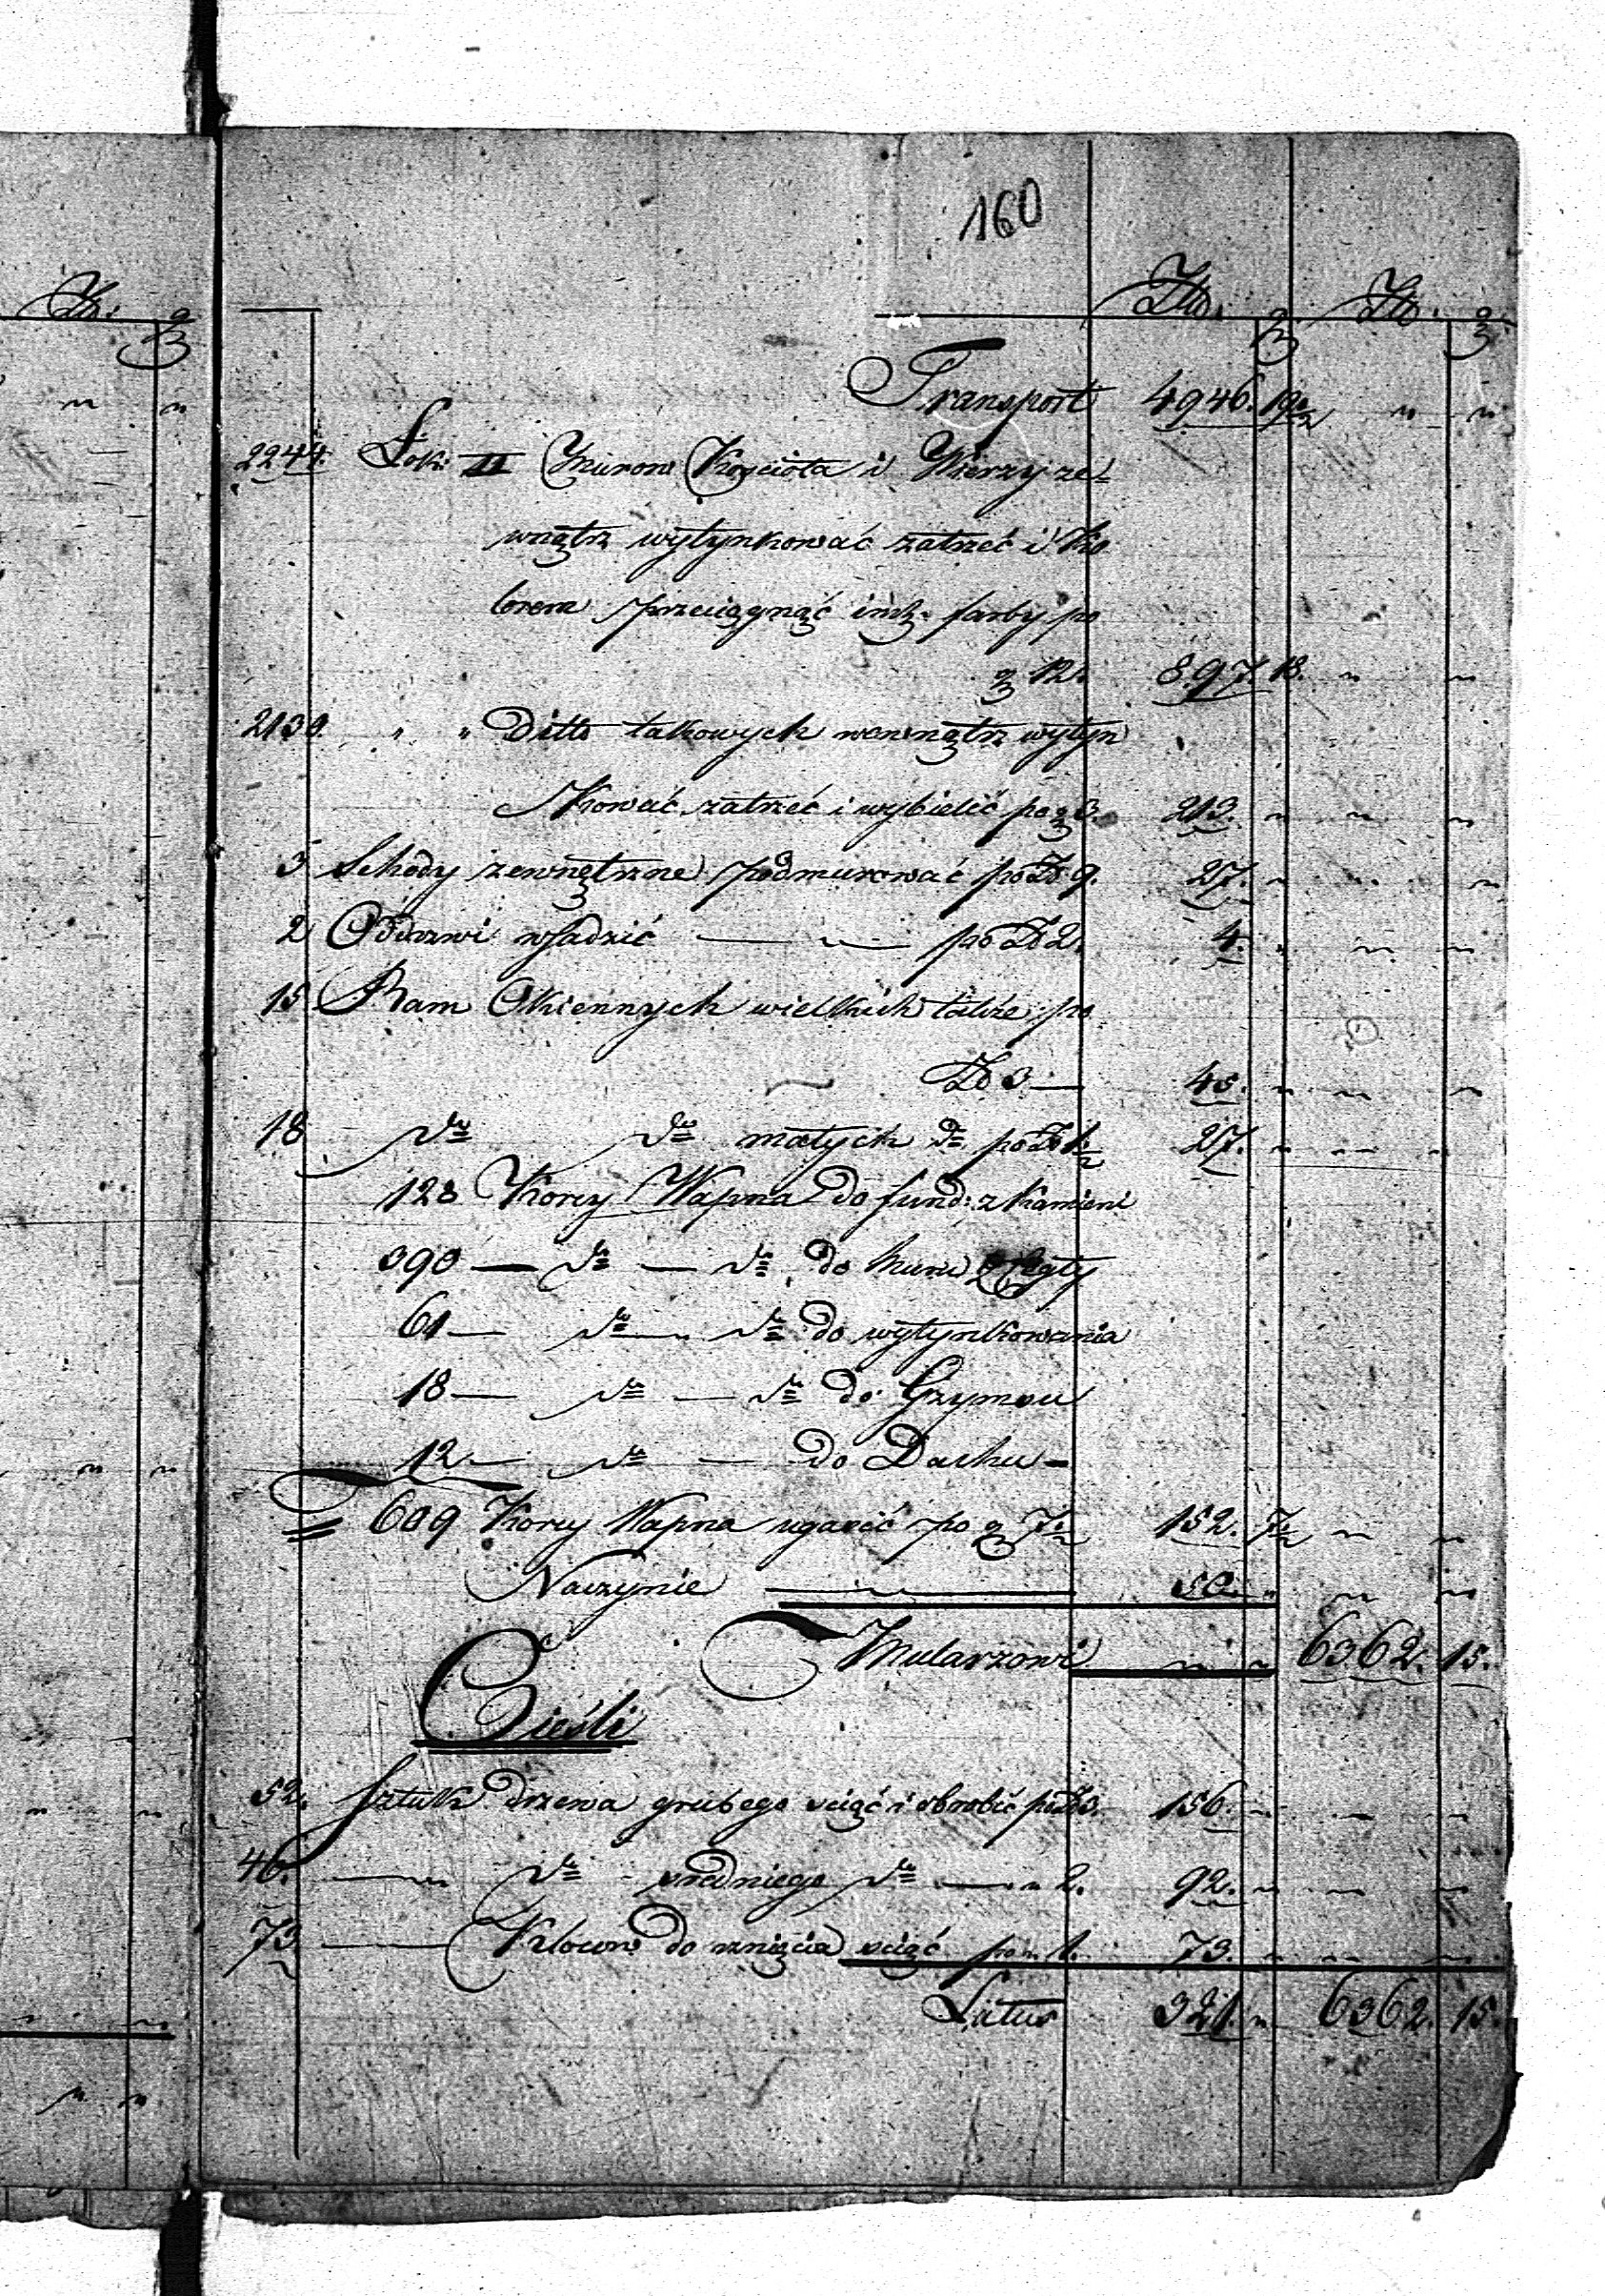 160
Zło. g Zło. g
Transport 4946. 19½ " "
2244. Łok: II Murow Kościoła i Wierzy ze=
wnątrz wytynkować zatrzeć i Ko
lorem przeciągnąć farby po
g 12. 897. 18. " "
2130. " " Ditto takowych wewnątrz wytyn
kować zatrzeć i wybielić po g 3. 213. " " "
3 Schody zewnętrzne podmurować po Zł 9. 27. " " "
2 Odrzwi wsadzić — " — po Zł 2. 4. " " "
15 Ram Okiennych wielkich także po
Zł 3 — 45. " " "
18 dto dto małych dto po Zł 1½ 27. " " "
128 Korcy Wapna do fund: z Kamieni
390 — dto — dto do Muru z Cegły
61 — dto — dto do wytynkowania
18 — dto — dto do Gzymsu
12 — dto — do Dachu —
= 609 Korcy Wapna ugasić po g 7½ 152. 7½ " "
Naczynie — " — 50. " " "
Mularzowi " " 6362. 15.
Cieśli
52. Sztuk drzewa grubego sciąć i obrobić po Zł 3. 156. " " "
46. — " dto sredniego dto — " 2. 92. " " "
73. — Klocow do rznięcia sciąć po " 1. 73. " " "
Latus 321. " 6362. 15.